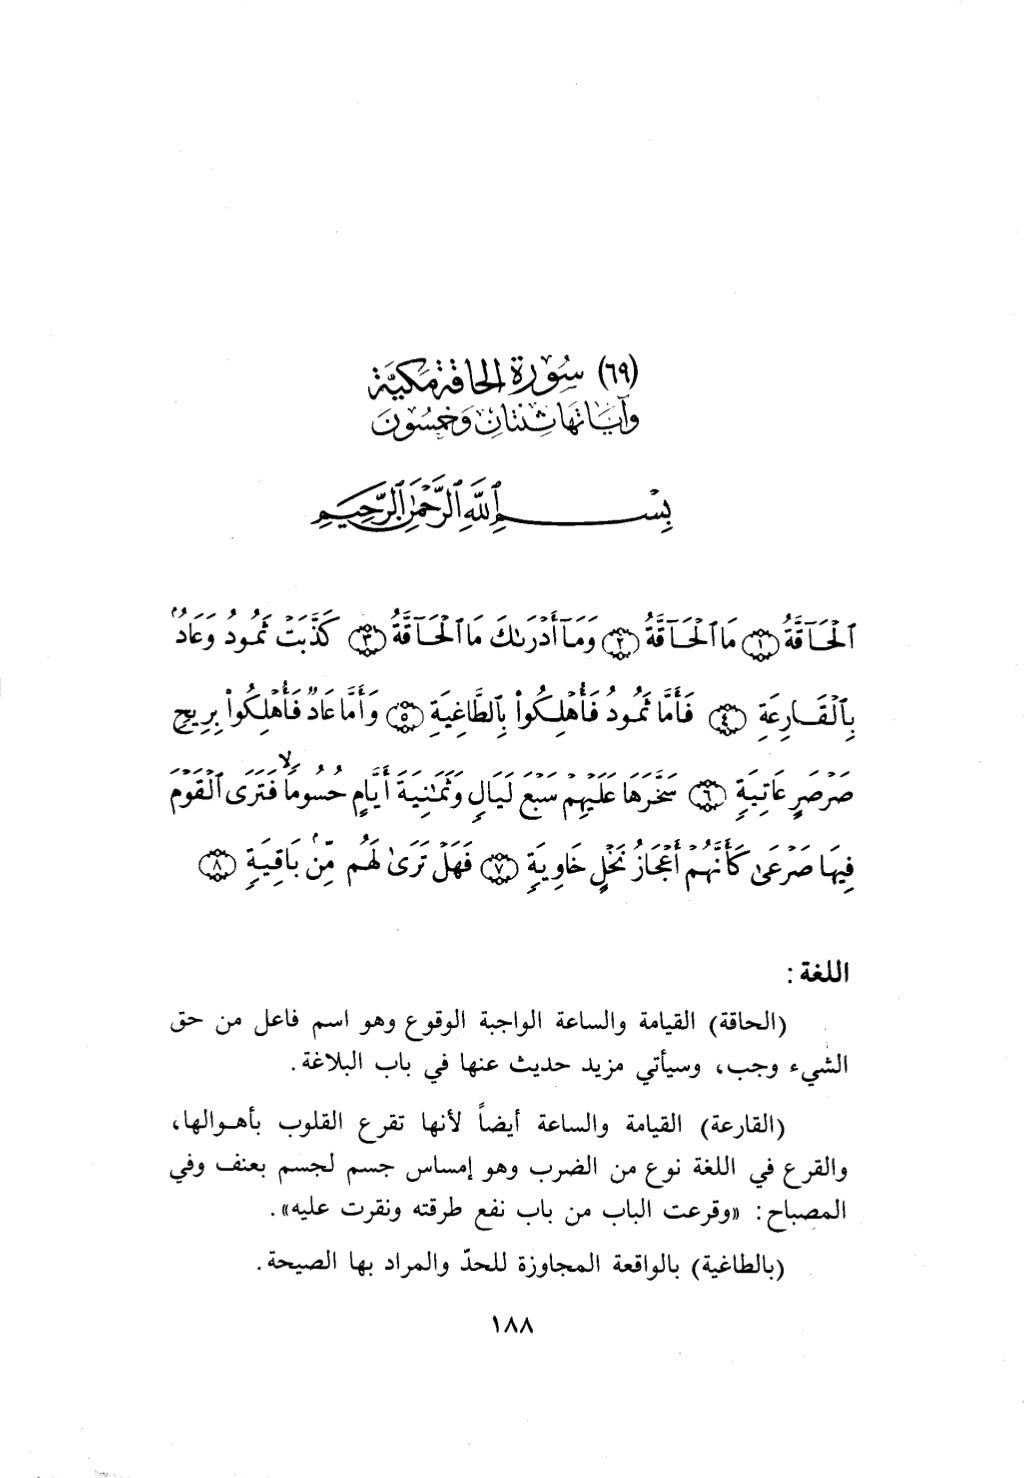 (٦٩) سُورَة الحَاقة مَكيَّة
وآيَاتهَا ثِنتَانِ وَخَمسُون
بِسْمِ ٱللَّهِ ٱلرَّحْمَٰنِ ٱلرَّحِيمِ
ٱلْحَآقَّةُ ﴿١﴾ مَا ٱلْحَآقَّةُ ﴿٢﴾ وَمَآ أَدْرَىٰكَ مَا ٱلْحَآقَّةُ ﴿٣﴾ كَذَّبَتْ ثَمُودُ وَعَادُۢ
بِٱلْقَارِعَةِ ﴿٤﴾ فَأَمَّا ثَمُودُ فَأُهْلِكُوا۟ بِٱلطَّاغِيَةِ ﴿٥﴾ وَأَمَّا عَادٌ فَأُهْلِكُوا۟ بِرِيحٍ
صَرْصَرٍ عَاتِيَةٍ ﴿٦﴾ سَخَّرَهَا عَلَيْهِمْ سَبْعَ لَيَالٍ وَثَمَٰنِيَةَ أَيَّامٍ حُسُومًاۙ فَتَرَى ٱلْقَوْمَ
فِيهَا صَرْعَىٰ كَأَنَّهُمْ أَعْجَازُ نَخْلٍ خَاوِيَةٍ ﴿٧﴾ فَهَلْ تَرَىٰ لَهُم مِّنۢ بَاقِيَةٍ ﴿٨﴾
اللغة:
(الحاقة) القيامة والساعة الواجبة الوقوع وهو اسم فاعل من حق
الشيء وجب، وسيأتي مزيد حديث عنها في باب البلاغة.
(القارعة) القيامة والساعة أيضاً لأنها تقرع القلوب بأهوالها،
والقرع في اللغة نوع من الضرب وهو إمساس جسم لجسم بعنف وفي
المصباح: «وقرعت الباب من باب نفع طرقته ونقرت عليه».
(بالطاغية) بالواقعة المجاوزة للحدّ والمراد بها الصيحة.
١٨٨